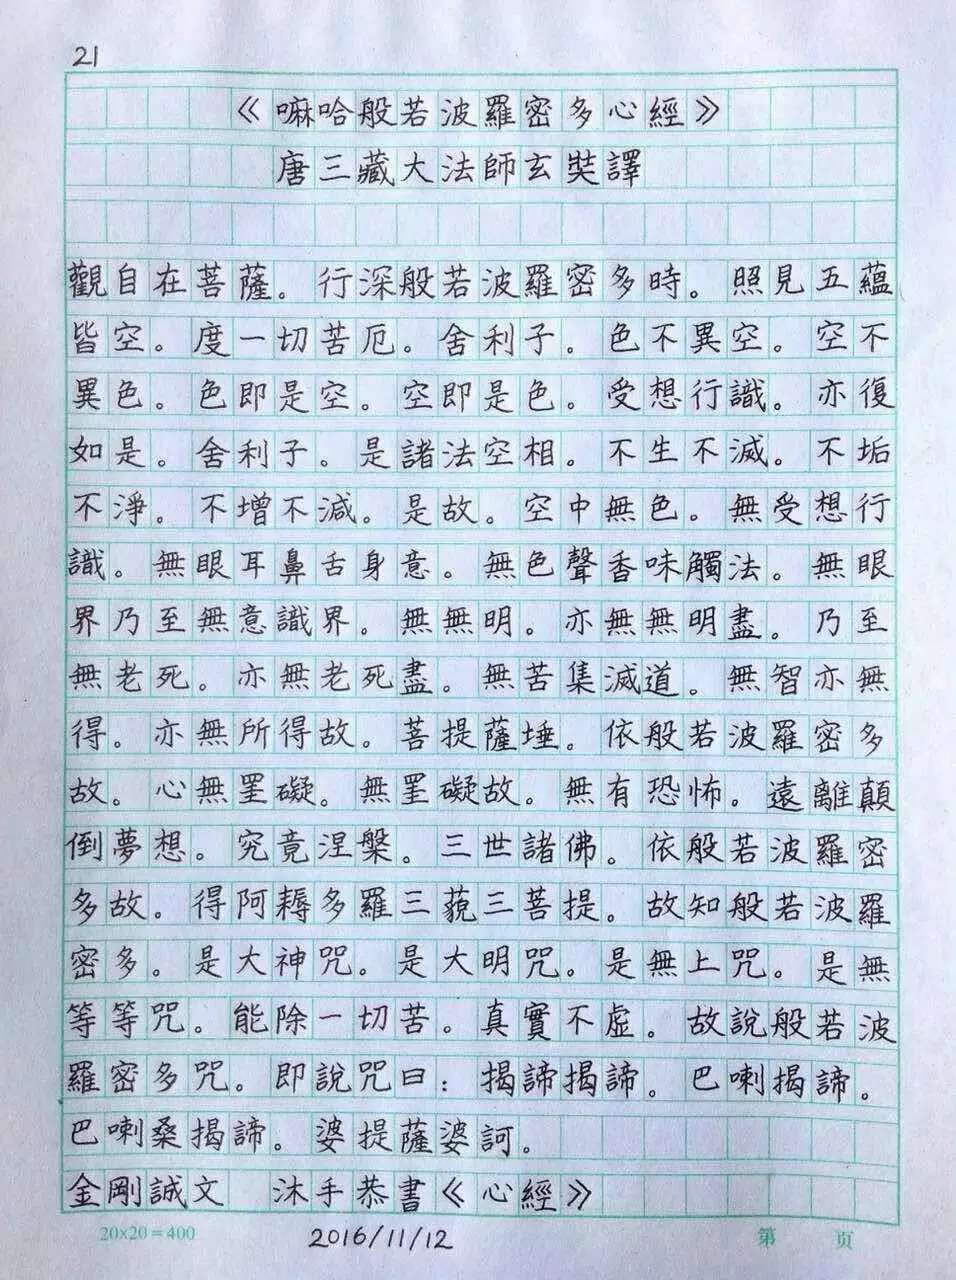 21
《嘛哈般若波羅密多心經》
唐三藏大法師玄奘譯
觀自在菩薩。行深般若波羅密多時。照見五蘊
皆空。度一切苦厄。舍利子。色不異空。空不
異色。色即是空。空即是色。受想行識。亦復
如是。舍利子。是諸法空相。不生不滅。不垢
不淨。不增不減。是故。空中無色。無受想行
識。無眼耳鼻舌身意。無色聲香味觸法。無眼
界乃至無意識界。無無明。亦無無明盡。乃至
無老死。亦無老死盡。無苦集滅道。無智亦無
得。亦無所得故。菩提薩埵。依般若波羅密多
故。心無罣礙。無罣礙故。無有恐怖。遠離顛
倒夢想。究竟涅槃。三世諸佛。依般若波羅密
多故。得阿耨多羅三藐三菩提。故知般若波羅
密多。是大神咒。是大明咒。是無上咒。是無
等等咒。能除一切苦。真實不虛。故說般若波
羅密多咒。即說咒曰：揭諦揭諦。巴喇揭諦。
巴喇桑揭諦。婆提薩婆訶。
金剛誠文 沐手恭書《心經》
20×20=400 2016/11/12 第 页